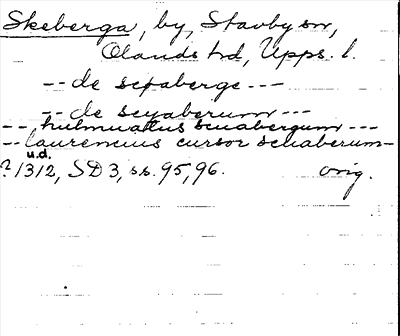 Skeberga, by, Stavby sn,
Olands hd, Upps. l.
-- de sepaberge ---
-- de scyaberum ---
-- hulmuastus scuabergum ---
-- laurencius cursor scuaberum --
u.d.
? 1312, SD 3, ss. 95, 96. orig.